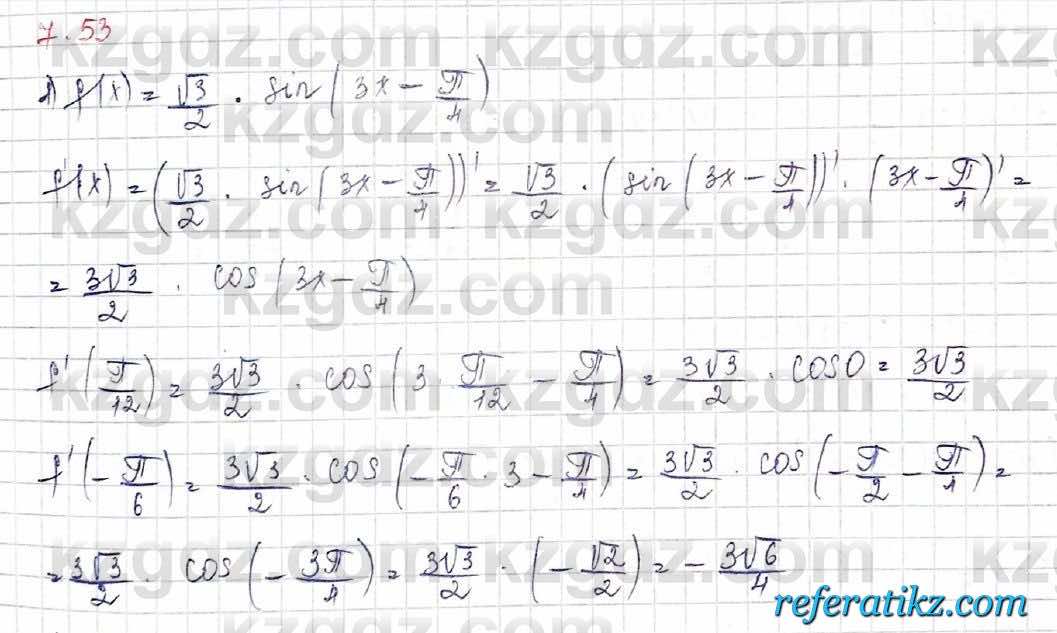 7.53
1) f(x) = √3/2 · sin(3x − π/4)
f'(x) = (√3/2 · sin(3x − π/4))' = √3/2 · (sin(3x − π/4))' · (3x − π/4)' =
= 3√3/2 · cos(3x − π/4)
f'(π/12) = 3√3/2 · cos(3 · π/12 − π/4) = 3√3/2 · cos0 = 3√3/2
f'(−π/6) = 3√3/2 · cos(−π/6 · 3 − π/4) = 3√3/2 · cos(−π/2 − π/4) =
= 3√3/2 · cos(−3π/4) = 3√3/2 · (−√2/2) = −3√6/4
kzgdz.com
referatikz.com